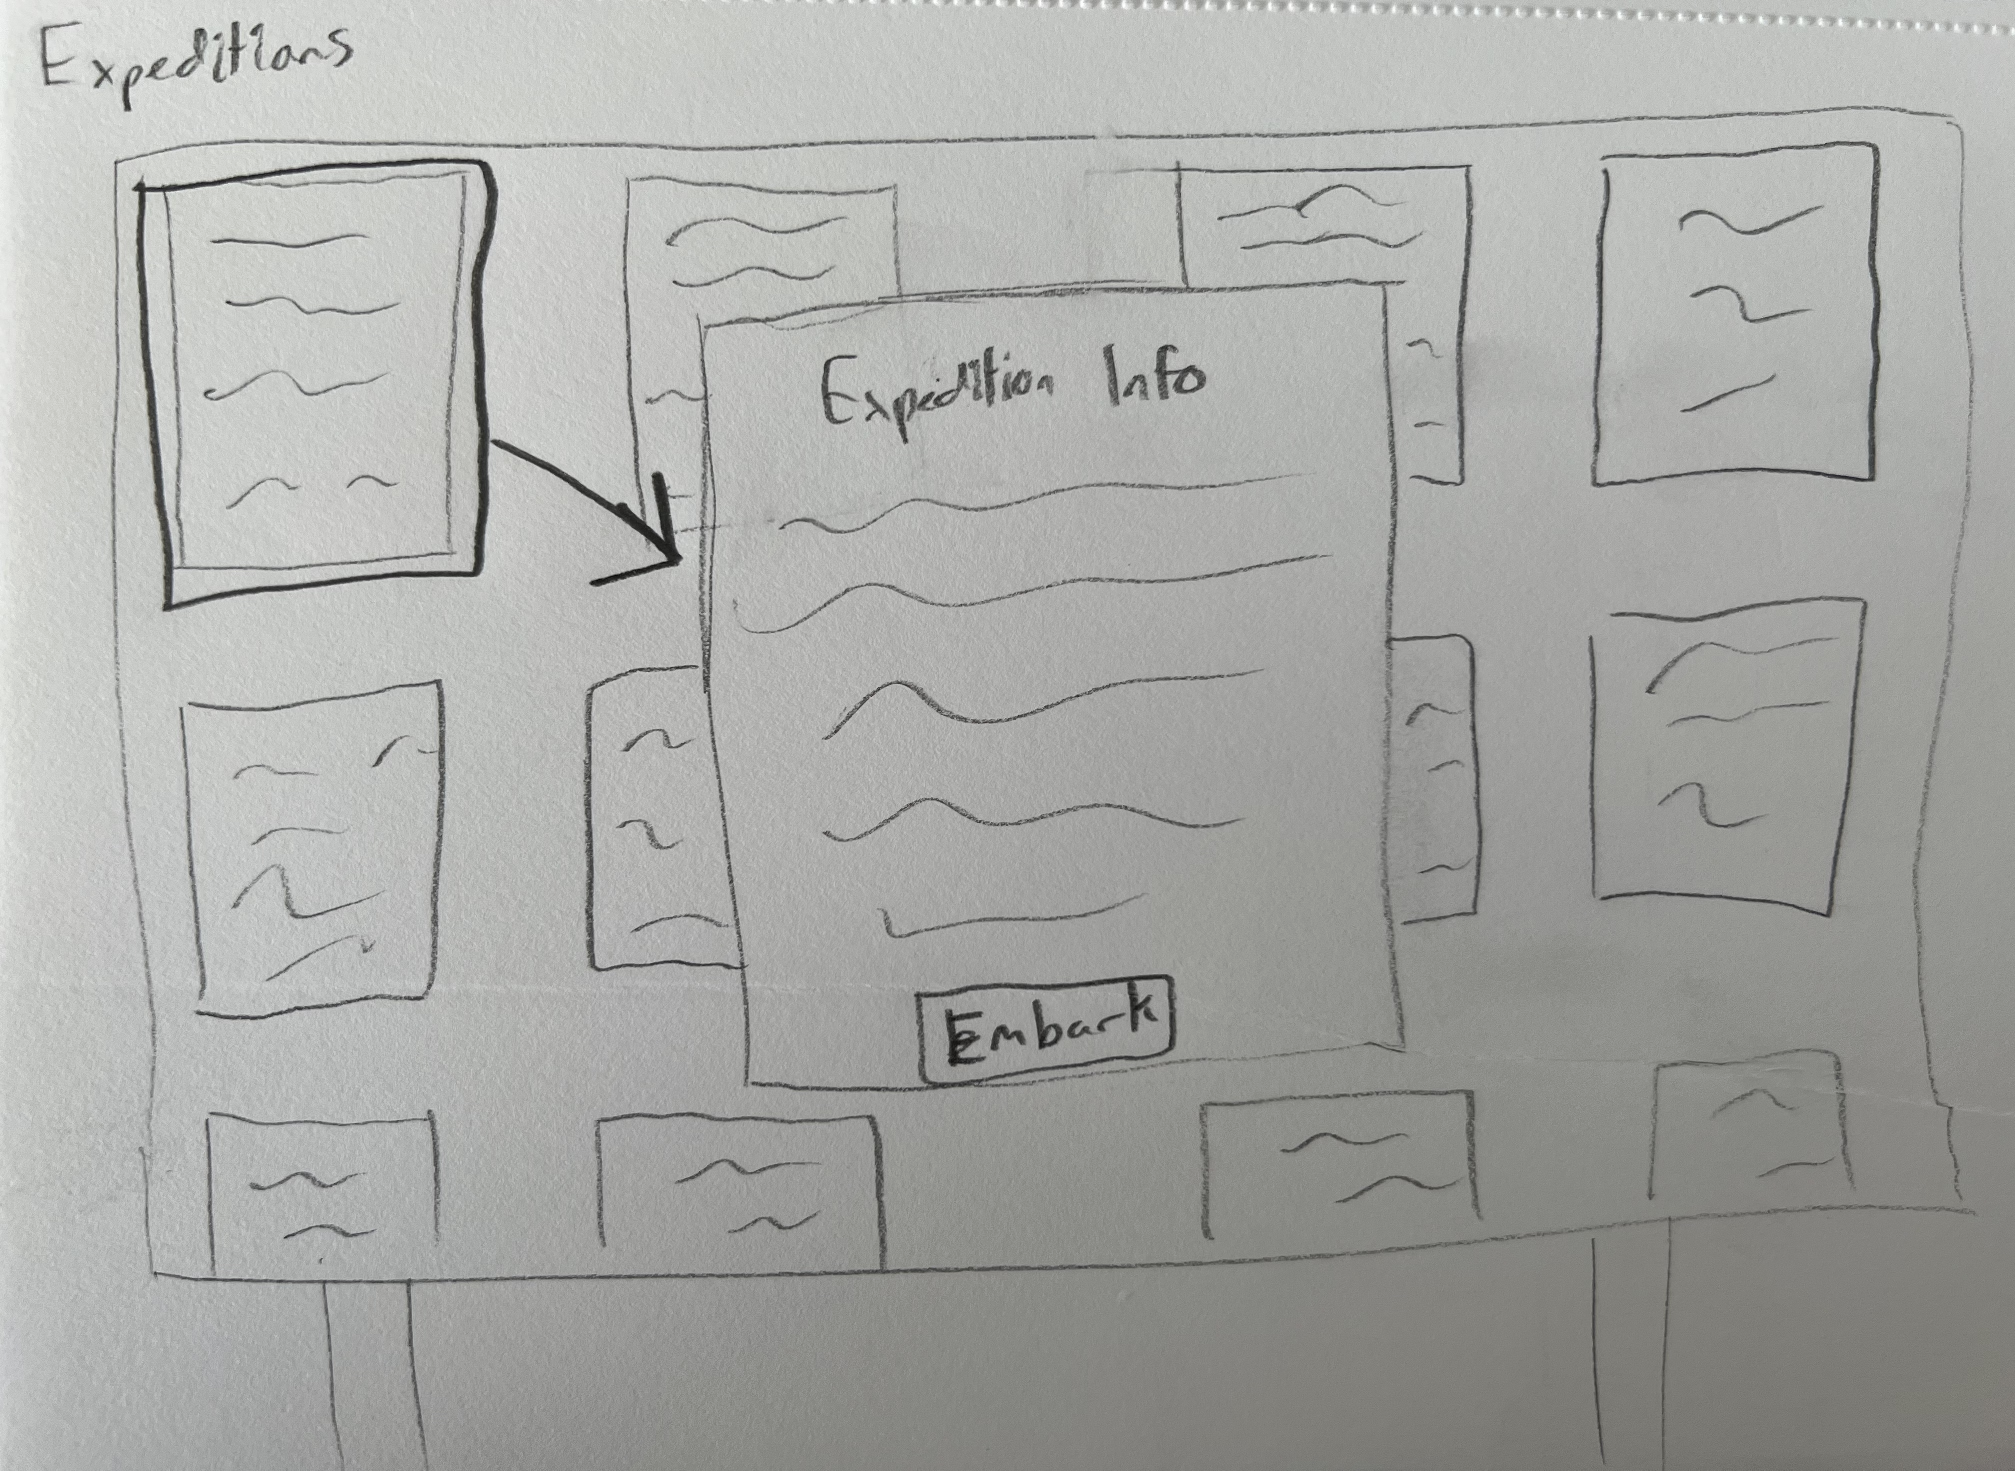 Expeditions
Expedition Info
Embark